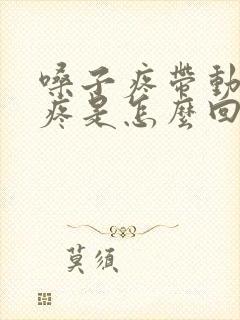 嗓子疼帶動
疼是怎麼回
莫須